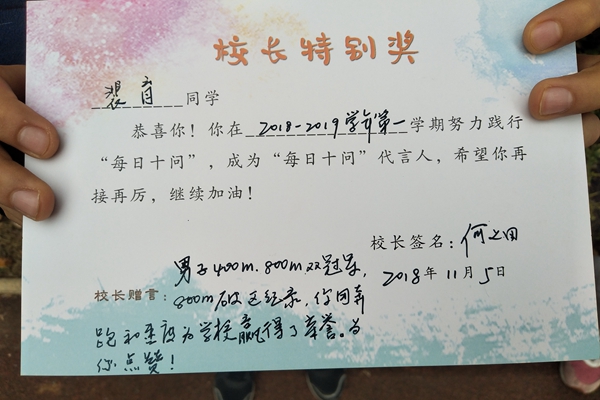 校长特别奖
裴育同学
恭喜你！你在2018-2019学年第一学期努力践行
“每日十问”，成为“每日十问”代言人，希望你再
接再厉，继续加油！
校长签名：何之田
2018年11月5日
男子400m.800m双冠军，
校长赠言：800m破区纪录，你因奔
跑和速度为学校赢得了荣誉。为
你点赞！